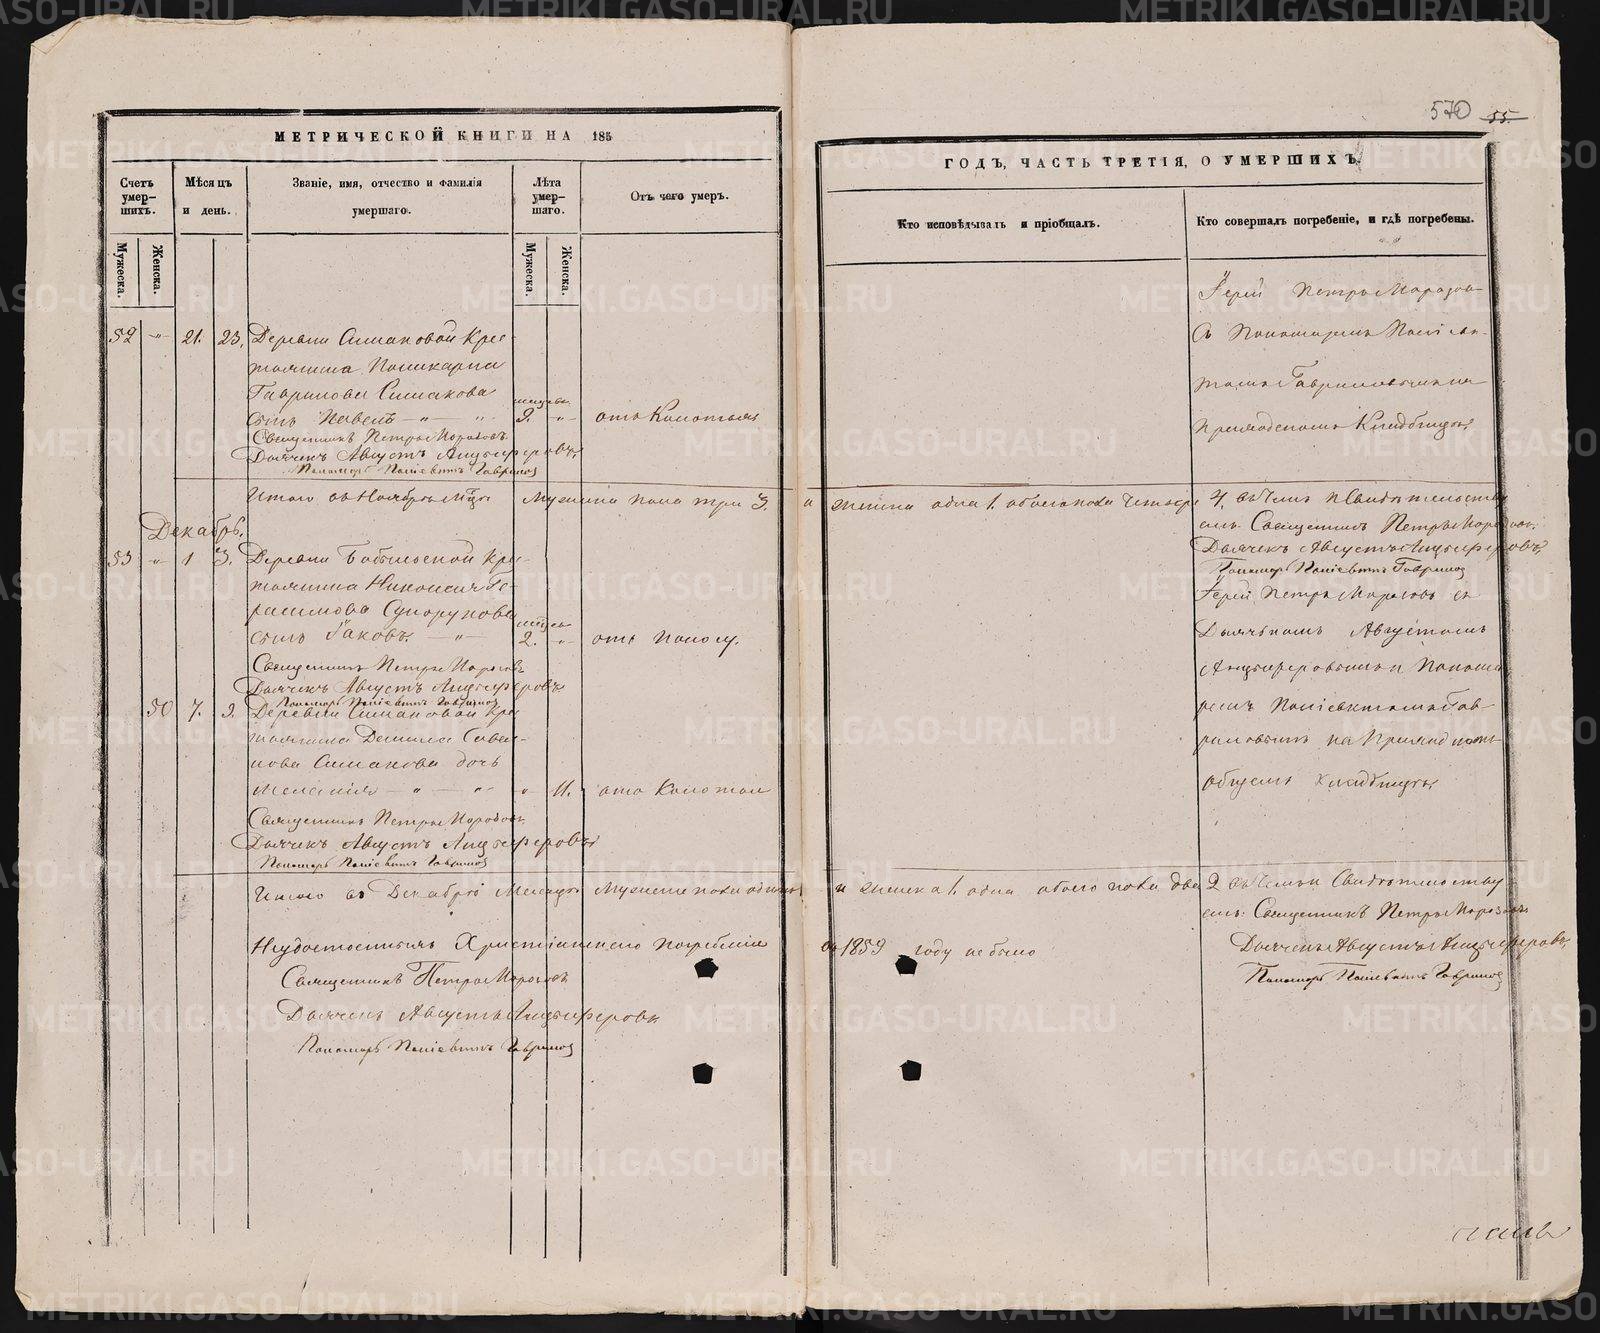 МЕТРИЧЕСКОЙ КНИГИ НА 185
Счетъ умер-шихъ.
Мужеска.
Женска.
Мѣсяцъ и день.
Званіе, имя, отчество и фамилія умершаго.
Лѣта умер-шаго.
Мужеска.
Женска.
Отъ чего умеръ.
52 " 21. 23. Деревни Симановой Крес-
тьянина Поликарпа
Гаврилова Симакова
сынъ Павелъ 9. " отъ Колотья
Священникъ Петръ Морозовъ
Дьячекъ Августъ Анцыферовъ
Пономарь Поліевктъ Гавриловъ
Итого въ Ноябрѣ М-цѣ Мужеска пола три 3.
Декабрь.
53 " 1 3. Деревни Бобыльской Кре-
стьянина Николая Ге-
расимова
сынъ Іаковъ 2. " отъ поносу.
Священникъ Петръ Морозовъ
Дьячекъ Августъ Анцыферовъ
Пономарь Поліевктъ Гавриловъ
50 7. 9. Деревни Симановой Кре-
стьянина Данила Саве-
лова Симакова дочь
Меланія " 11. отъ Колотья
Священникъ Петръ Морозовъ
Дьячекъ Августъ Анцыферовъ
Пономарь Поліевктъ Гавриловъ
Итого въ Декабрѣ Месяцѣ Мужеска пола одинъ
Неудостоенныхъ Христіанскаго погребенія
Священникъ Петръ Морозовъ
Дьячекъ Августъ Анцыферовъ
Пономарь Поліевктъ Гавриловъ
570 55.
ГОДЪ, ЧАСТЬ ТРЕТІЯ, О УМЕРШИХЪ.
Кто исповѣдывалъ и пріобщалъ.
Кто совершалъ погребеніе, и гдѣ погребены.
Іерей Петръ Морозов
съ Пономаремъ Поліевк-
томъ Гавриловымъ на
приходскомъ Кладбищѣ
и женска одна 1. обоего пола четыре 4. въ чемъ и Свидѣтельству
емъ: Священникъ Петръ Морозовъ.
Дьячекъ Августъ Анцыферовъ
Пономарь Поліевктъ Гавриловъ
Іерей Петръ Морозовъ съ
Дьячкомъ Августомъ
Анцыферовымъ и Понома
ремъ Поліевктомъ Гав-
риловымъ на Приходскомъ
общемъ кладбищѣ
и женска 1. одна обоего пола два 2 въ чемъ и Свидѣтельству
емъ: Священникъ Петръ Морозовъ
въ 1859 году не было
Дьячекъ Августъ Анцыферовъ
Пономарь Поліевктъ Гавриловъ
METRIKI.GASO-URAL.RU